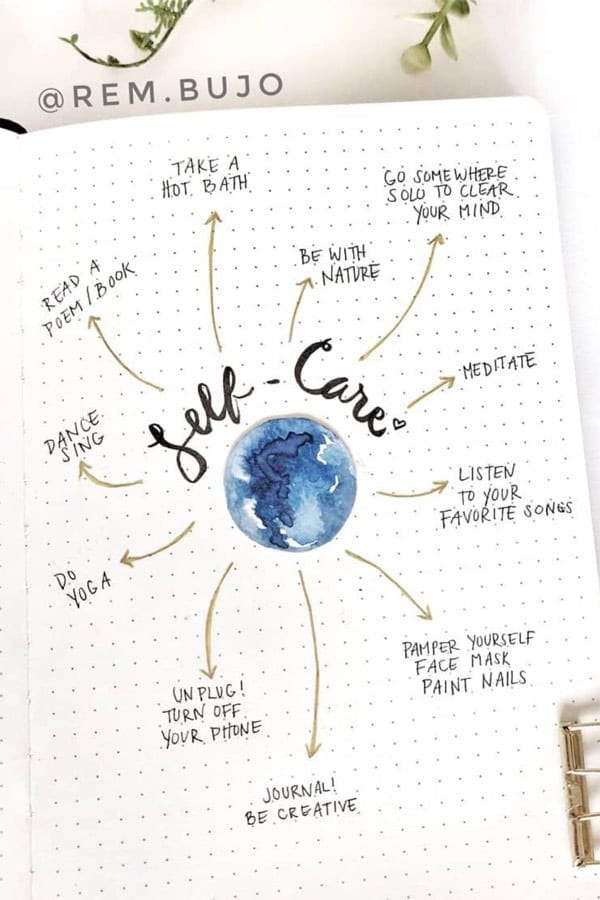 @REM.BUJO
TAKE A
HOT BATH
GO SOMEWHERE
SOLO TO CLEAR
YOUR MIND
BE WITH
NATURE
READ A
POEM/BOOK
MEDITATE
Self-Care
DANCE
SING
LISTEN
TO YOUR
FAVORITE SONGS
DO
YOGA
PAMPER YOURSELF
FACE MASK
PAINT NAILS
UNPLUG!
TURN OFF
YOUR PHONE
JOURNAL!
BE CREATIVE